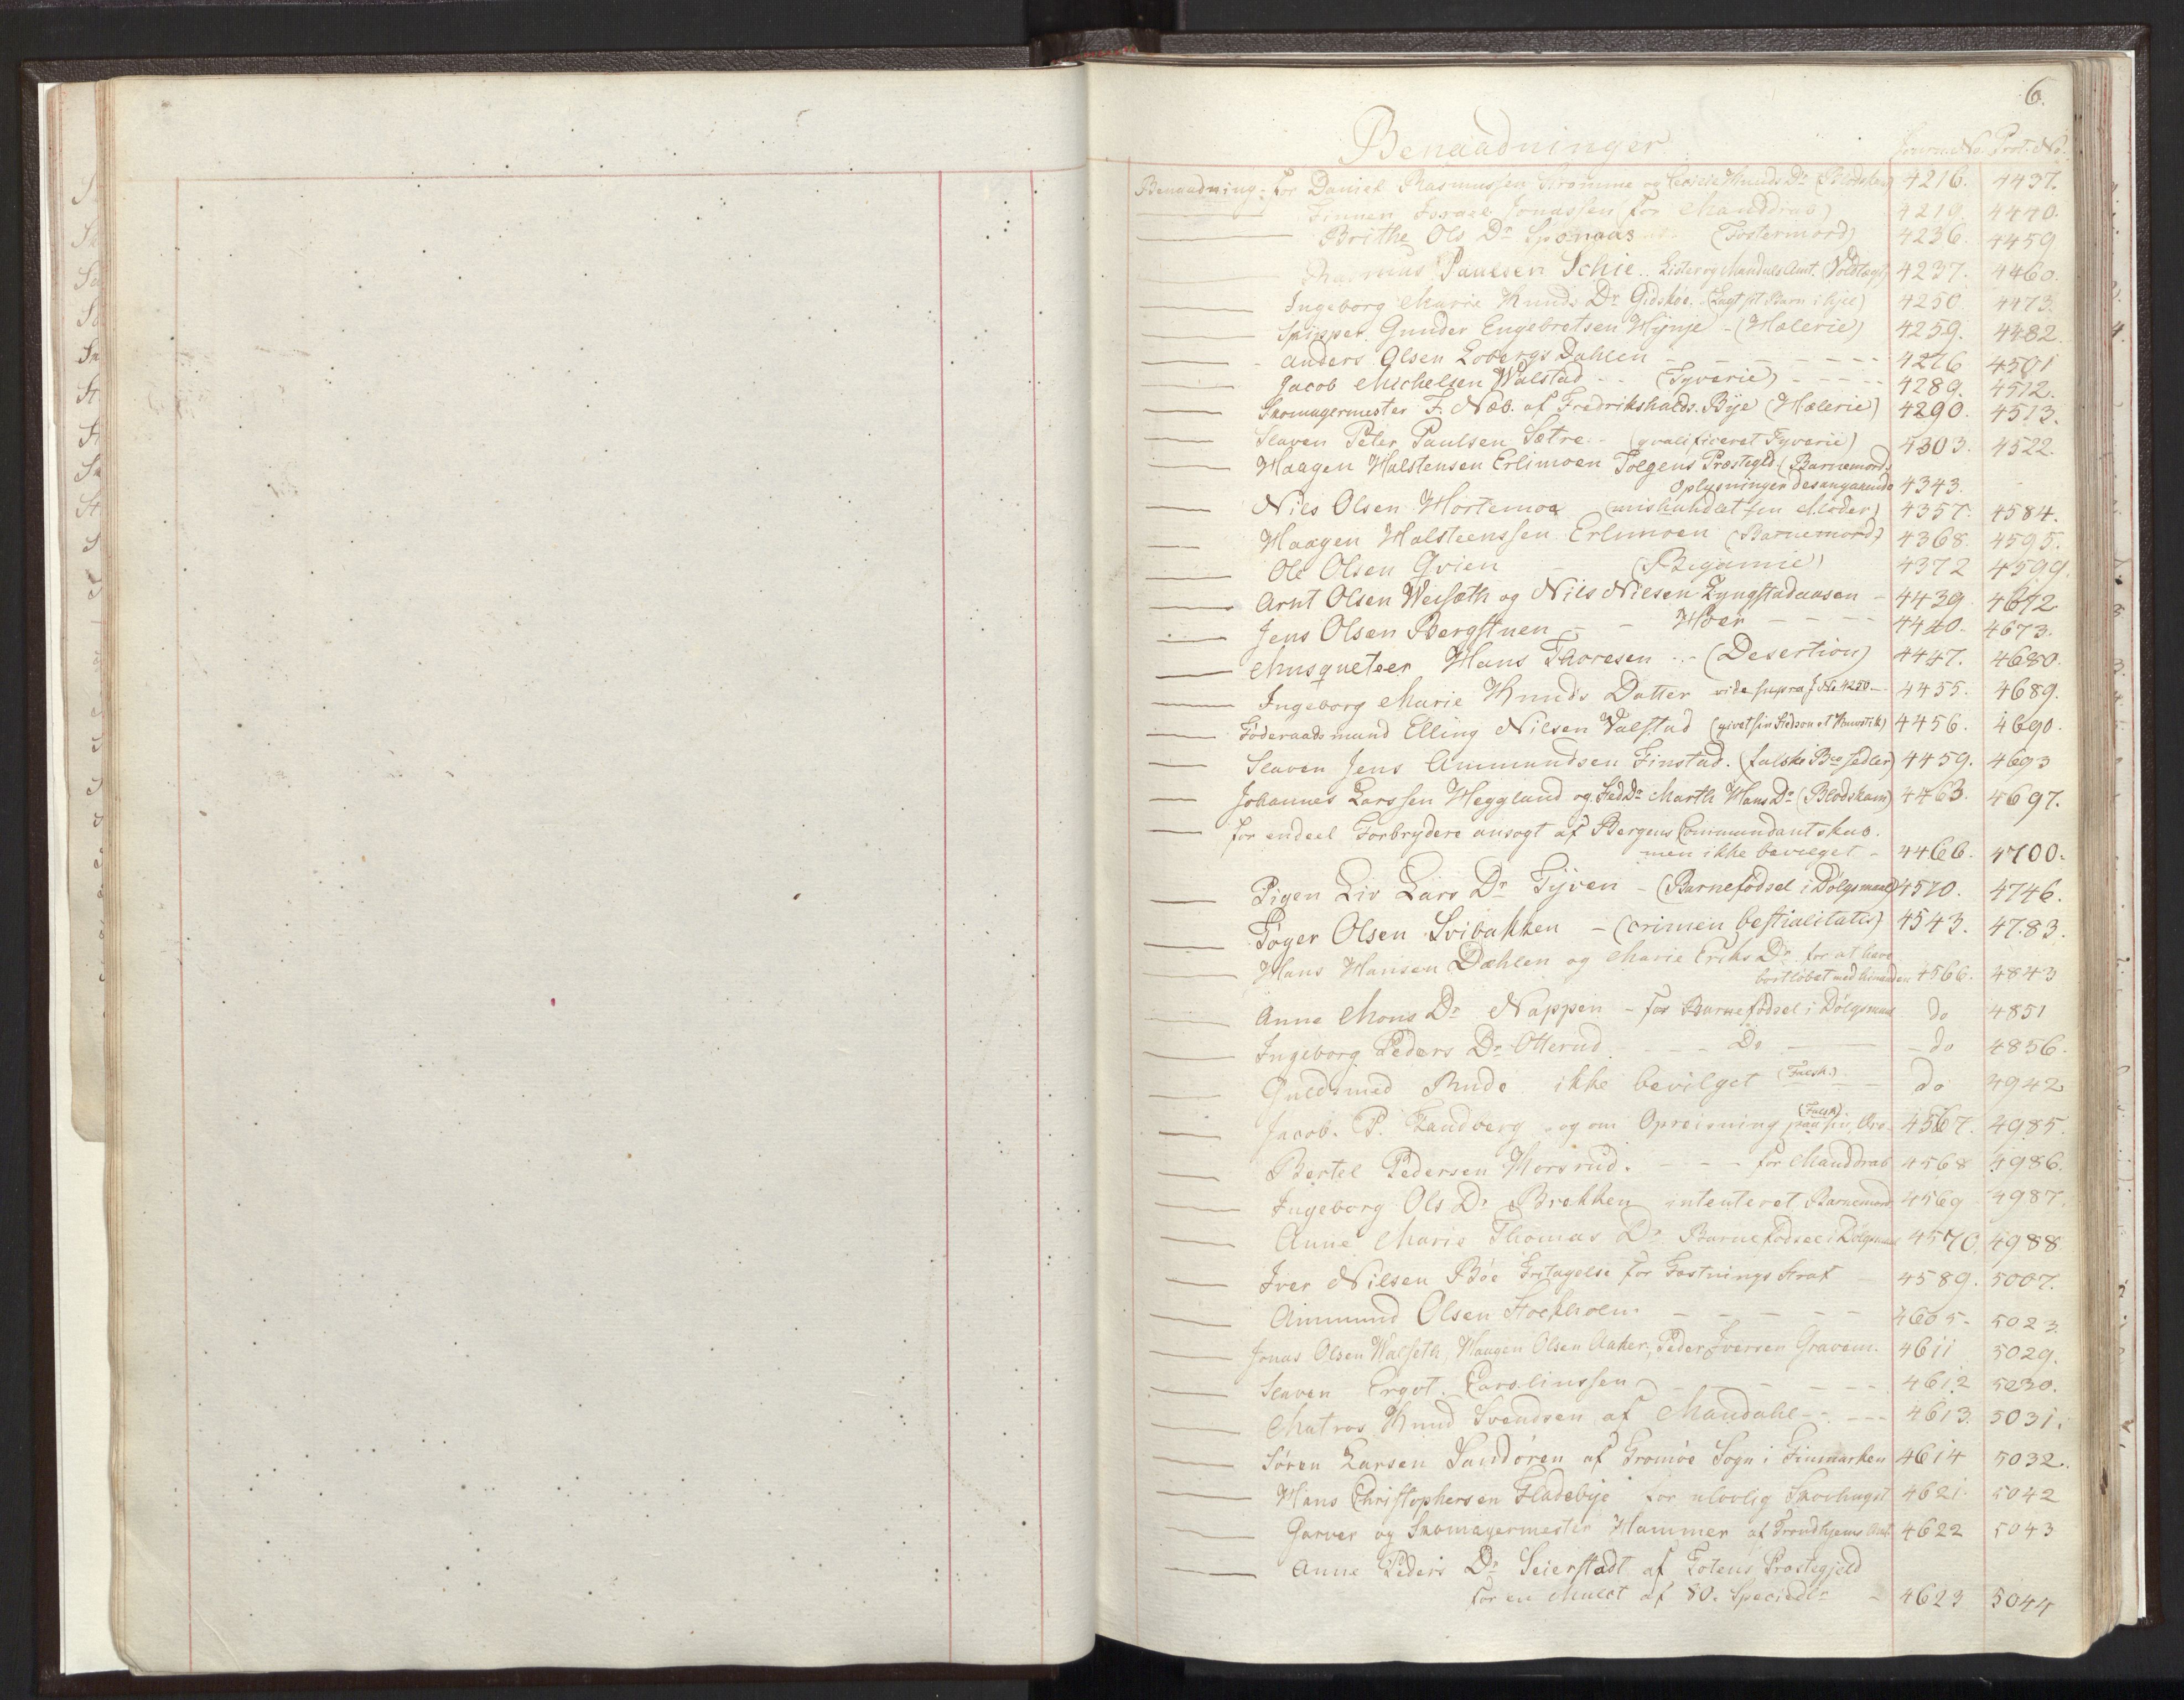 6.
Benaadninger
Journ. No. Prot. No.
Benaadning for Daniel Rasmussen Strömme og Knuds Dr (Blodskam) 4216. 4437.
Finnen Israel Jonassen for Manddrab) 4219. 4440.
Brithe Ols Dr Sponaas (Fostermord) 4236. 4459.
Rasmus Paulsen Schie. Lister og Mandals Amt. (Voldtægt) 4237. 4460.
Ingeborg Marie Knuds Dr Gidskøe. (Lagt sit Barn ihjel) 4250 4473.
Skipper Gunder Engebretsen Hynje - (Hælerie) 4259. 4482.
Anders Olsen Lobergs Dahlen - - - - - 4276 4501
Jacob Michelsen Walstad - - (Tyverie) - - - - 4289. 4512.
Skomagermester F. Næb. af Fredrikshalds. Bye (Hælerie) 4290. 4513.
Slaven Peter Paulsen Sætre - (qvalificeret Tyverie) 4303. 4522.
Haagen Halstensen Erlimoen Tolgens Præstegld. (Barnemord,
Oplysninger desangaaende 4343. -
Nils Olsen Hortemoe (mishandlet sin Moder) 4357. 4584.
Haagen Halsteenssen Erlimoen (Barnemord) 4368. 4595.
Ole Olsen Qvien - (Bigamie) 4372 4599.
Arnt Olsen Weisæth og Nils Nilsen Lyngstadaasen - 4439 4672
Jens Olsen Bergstuen - - Hoer - - - - 4440. 4673.
Musqueteer Hans Thoresen - (Desertion) 4447. 4680.
Ingeborg Marie Knuds Datter vide supra J. No. 4250 - 4455. 4689.
Föderaadsmand Elling Nilsen Valstad (givet sin Stedson et Knivstik) 4456. 4690.
Slaven Jens Ammundsen Finstad. (falske Bco Sedler) 4459. 4693
Johannes Larssen Heggland og Sted Dr Marth Hans Dr (Blodskam) 4463. 4697.
for endeel Forbrydere ansøgt af Bergens Commandantskab.
men ikke bevilget - 4466. 4700.
Pigen Liv Lars Dr Tyven - (Barnefödsel i Dölgsmaal) 4510. 4746.
Töger Olsen Svibakken - (crimen bestialitatis) 4543. 4783.
Hans Hansen Dæhlen og Marie Eriks Dr for at have
bortlöbet med hinanden 4566. 4843
Anne Mons Dr Nappen - for Barnefödsel i Dölgsmaal do 4851
Ingeborg Peders Dr Otterud - - - Do - do 4856.
Guldsmed Rude ikke bevilget (Falsk) - do 4942
Jacob. P. Landberg - og om Opreisning (Falsk) paa sin Ære 4567. 4985.
Bertel Pedersen Horsrud. - - - for Manddrab 4568 4986.
Ingeborg Ols Dr Brekken intenteret Barnemord 4569 4987.
Anne Marie Thomas Dr Barnefödsel i Dölgsmaal 4570. 4988
Iver Nilsen Böe Fritagelse for Fæstnings Straf 4589. 5007.
Ammund Olsen Stockholm - - - - - 4605. 5023
Jonas Olsen Walseth, Haagen Olsen Aaker, Peder Iversen Gravem. 4611 5029.
Slaven Ergot. Carolinssen - - - - - 4612 5030.
Matros Knud Svendsen af Mandahl - - - 4613. 5031.
Sören Larsen Sandören af Tromöe Sogn i Finmarken 4614 5032.
Hans Christophersen Fladebye for ulovlig Skovhugst 4621. 5042
Garver og Skomagermester Hammer af Trondhjems Amt 4622 5043
Anne Peders Dr Seierstadt af Totens Præstegjeld
for en Mulct af 80. Speciedlr - 4623 5044